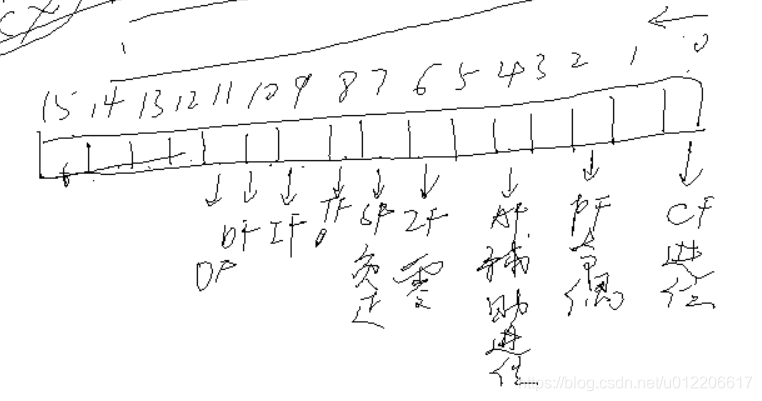 CX
15 14 13 12 11 10 9 8 7 6 5 4 3 2 1 0
OF DF IF TF SF ZF AF PF CF
负正 零 辅助进位 奇偶 进位
https://blog.csdn.net/u012206617